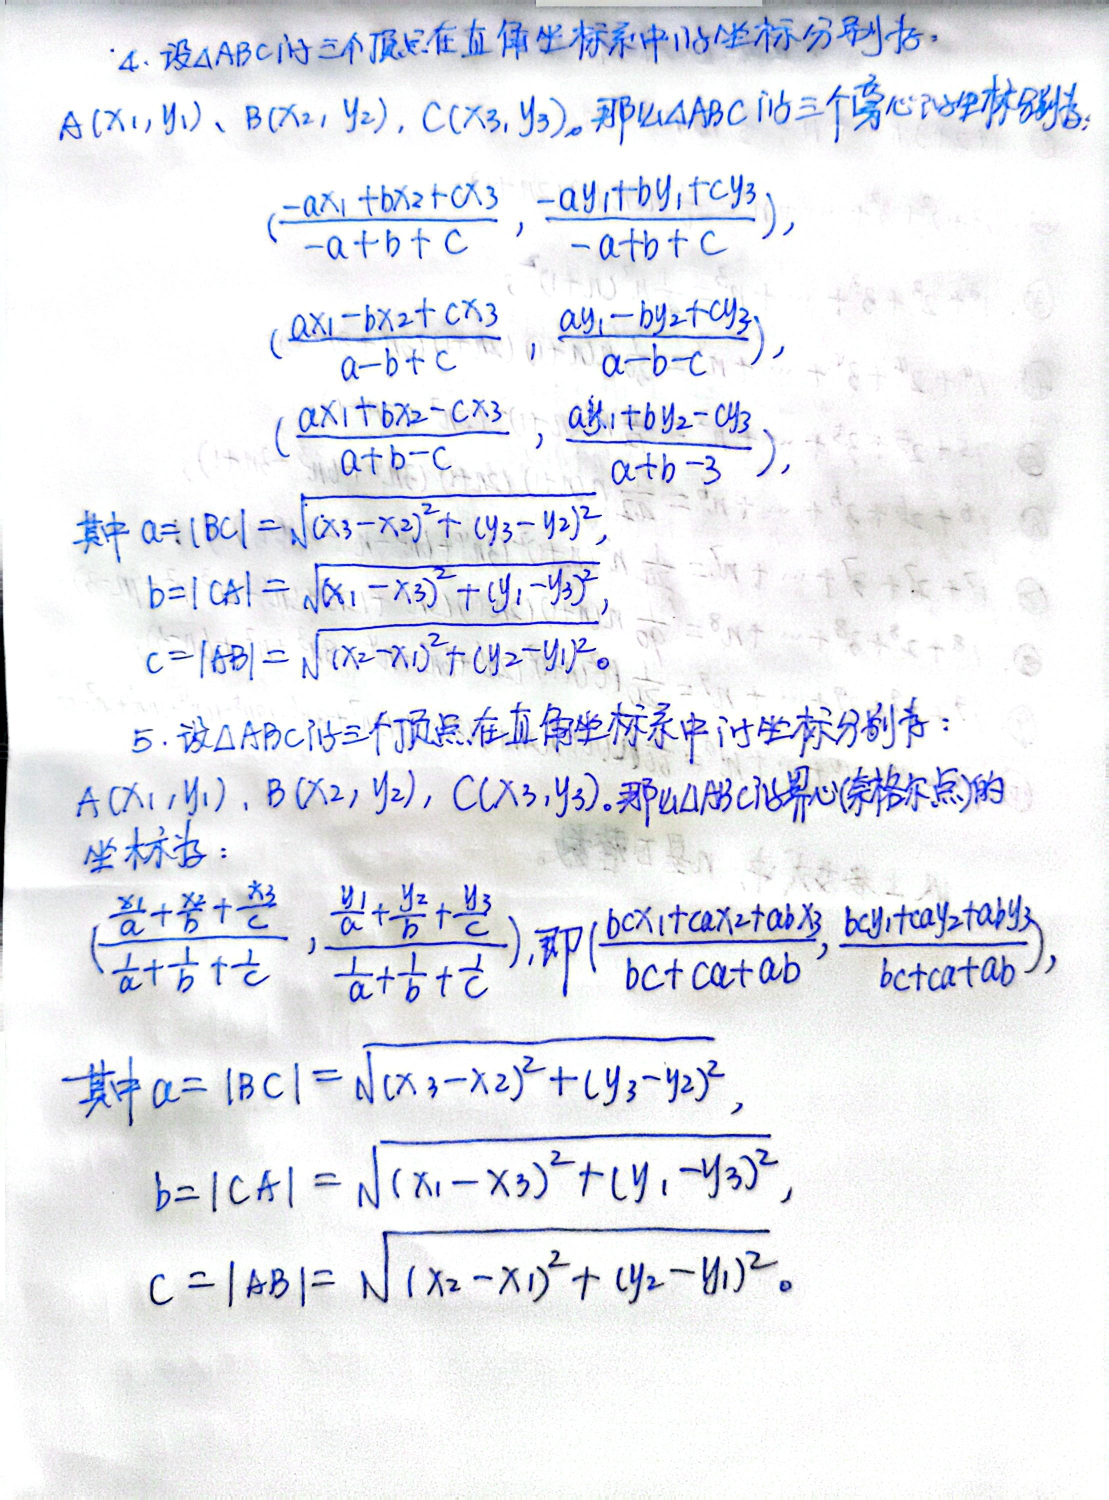 4. 设△ABC的三个顶点在直角坐标系中的坐标分别为:
A(x₁,y₁)、B(x₂,y₂), C(x₃,y₃)。那么△ABC的三个旁心的坐标分别为:
(\frac{-ax₁+bx₂+cx₃}{-a+b+c}, \frac{-ay₁+by₁+cy₃}{-a+b+c}),
(\frac{ax₁-bx₂+cx₃}{a-b+c}, \frac{ay₁-by₂+cy₃}{a-b-c}),
(\frac{ax₁+bx₂-cx₃}{a+b-c}, \frac{ay₁+by₂-cy₃}{a+b-3}),
其中a=|BC|=\sqrt{(x₃-x₂)²+(y₃-y₂)²},
b=|CA|=\sqrt{(x₁-x₃)²+(y₁-y₃)²},
c=|AB|=\sqrt{(x₂-x₁)²+(y₂-y₁)²}。
5. 设△ABC的三个顶点在直角坐标系中的坐标分别为:
A(x₁,y₁)、B(x₂,y₂), C(x₃,y₃)。那么△ABC的界心(奈格尔点)的
坐标为:
(\frac{\frac{x₁}{a}+\frac{x₂}{b}+\frac{x₃}{c}}{\frac{1}{a}+\frac{1}{b}+\frac{1}{c}}, \frac{\frac{y₁}{a}+\frac{y₂}{b}+\frac{y₃}{c}}{\frac{1}{a}+\frac{1}{b}+\frac{1}{c}}),即(\frac{bcx₁+cax₂+abx₃}{bc+ca+ab}, \frac{bcy₁+cay₂+aby₃}{bc+ca+ab}),
其中a=|BC|=\sqrt{(x₃-x₂)²+(y₃-y₂)²},
b=|CA|=\sqrt{(x₁-x₃)²+(y₁-y₃)²},
c=|AB|=\sqrt{(x₂-x₁)²+(y₂-y₁)²}。